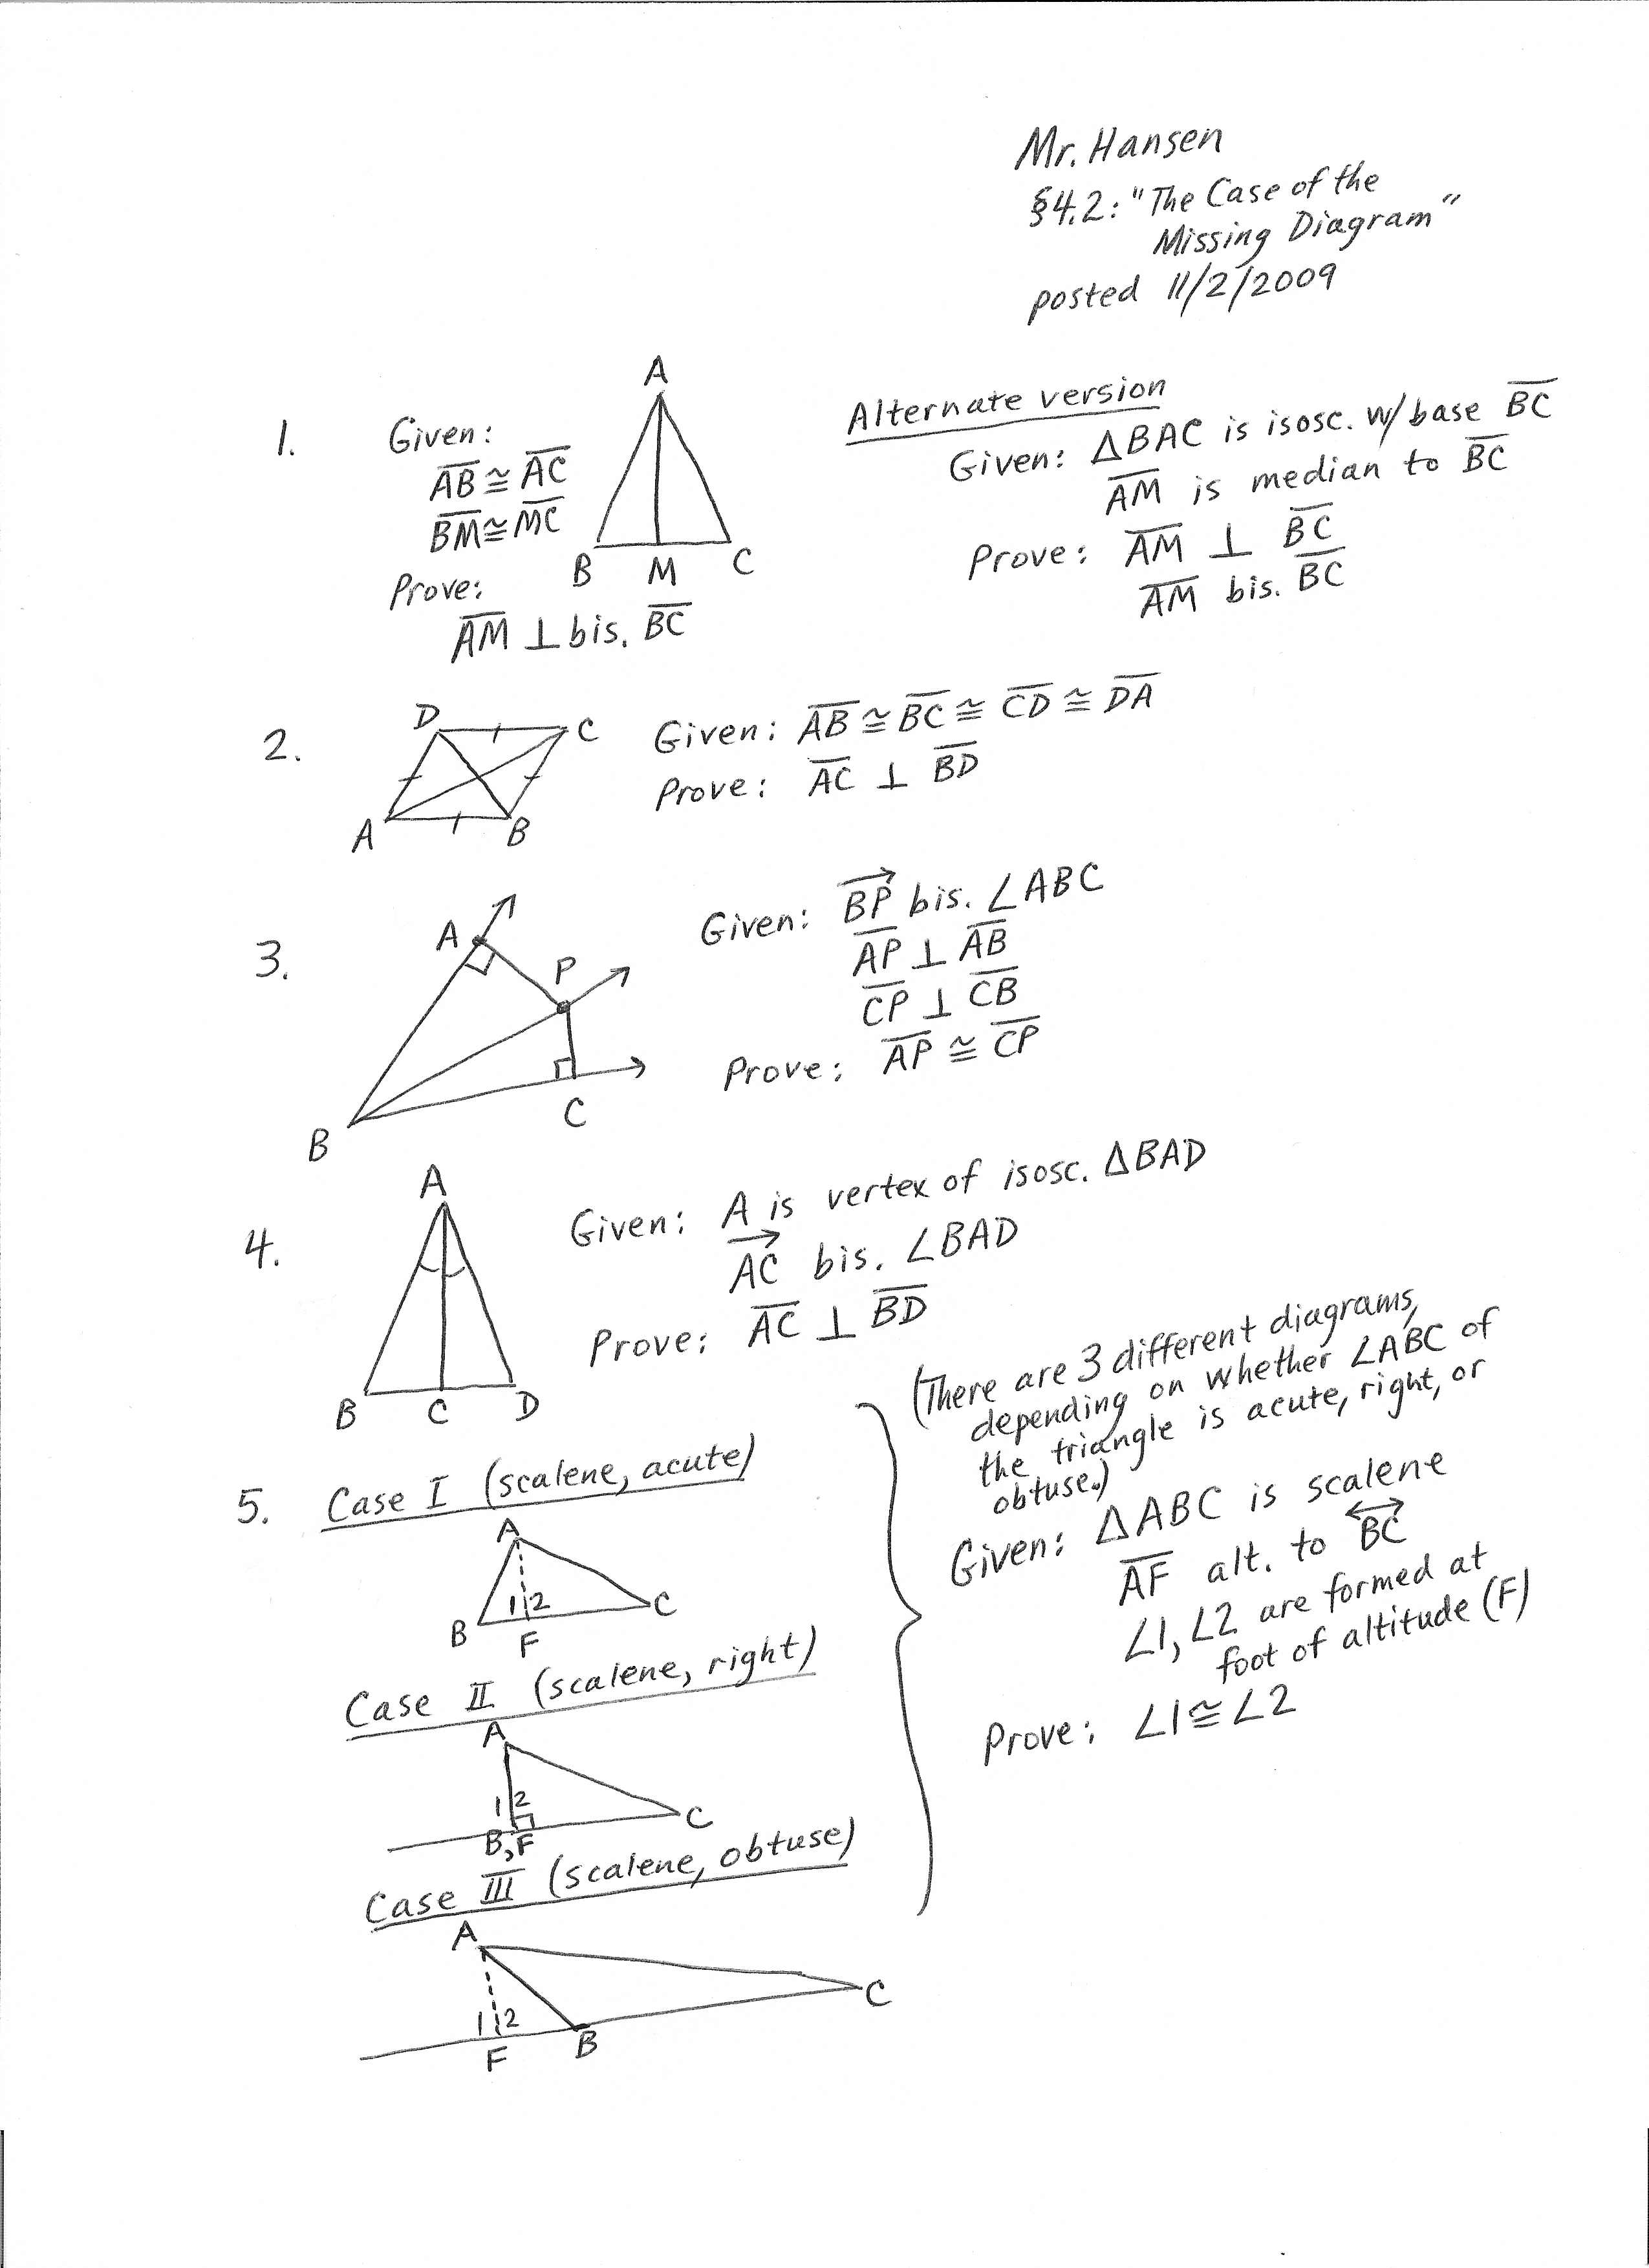 Mr. Hansen
§4.2: "The Case of the
Missing Diagram"
posted 11/2/2009
1.
Given:
A̅B̅ ≅ A̅C̅
B̅M̅ ≅ M̅C̅
Prove:
A̅M̅ ⊥ bis. B̅C̅
A
B M C
Alternate version
Given: △BAC is isosc. w/ base B̅C̅
A̅M̅ is median to B̅C̅
Prove: A̅M̅ ⊥ B̅C̅
A̅M̅ bis. B̅C̅
2.
D C
A B
Given: A̅B̅ ≅ B̅C̅ ≅ C̅D̅ ≅ D̅A̅
Prove: A̅C̅ ⊥ B̅D̅
3.
A
P
B
C
Given: B⃗P⃗ bis. ∠ABC
A̅P̅ ⊥ A̅B̅
C̅P̅ ⊥ C̅B̅
Prove: A̅P̅ ≅ C̅P̅
4.
A
B C D
Given: A is vertex of isosc. △BAD
A⃗C⃗ bis. ∠BAD
Prove: A̅C̅ ⊥ B̅D̅
5. Case I (scalene, acute)
A
1 2
B F C
Case II (scalene, right)
A
1 2
B,F C
Case III (scalene, obtuse)
A
1 2
F B C
(There are 3 different diagrams,
depending on whether ∠ABC of
the triangle is acute, right, or
obtuse.)
Given: △ABC is scalene
A̅F̅ alt. to B⃡C⃡
∠1, ∠2 are formed at
foot of altitude (F)
Prove: ∠1 ≅ ∠2